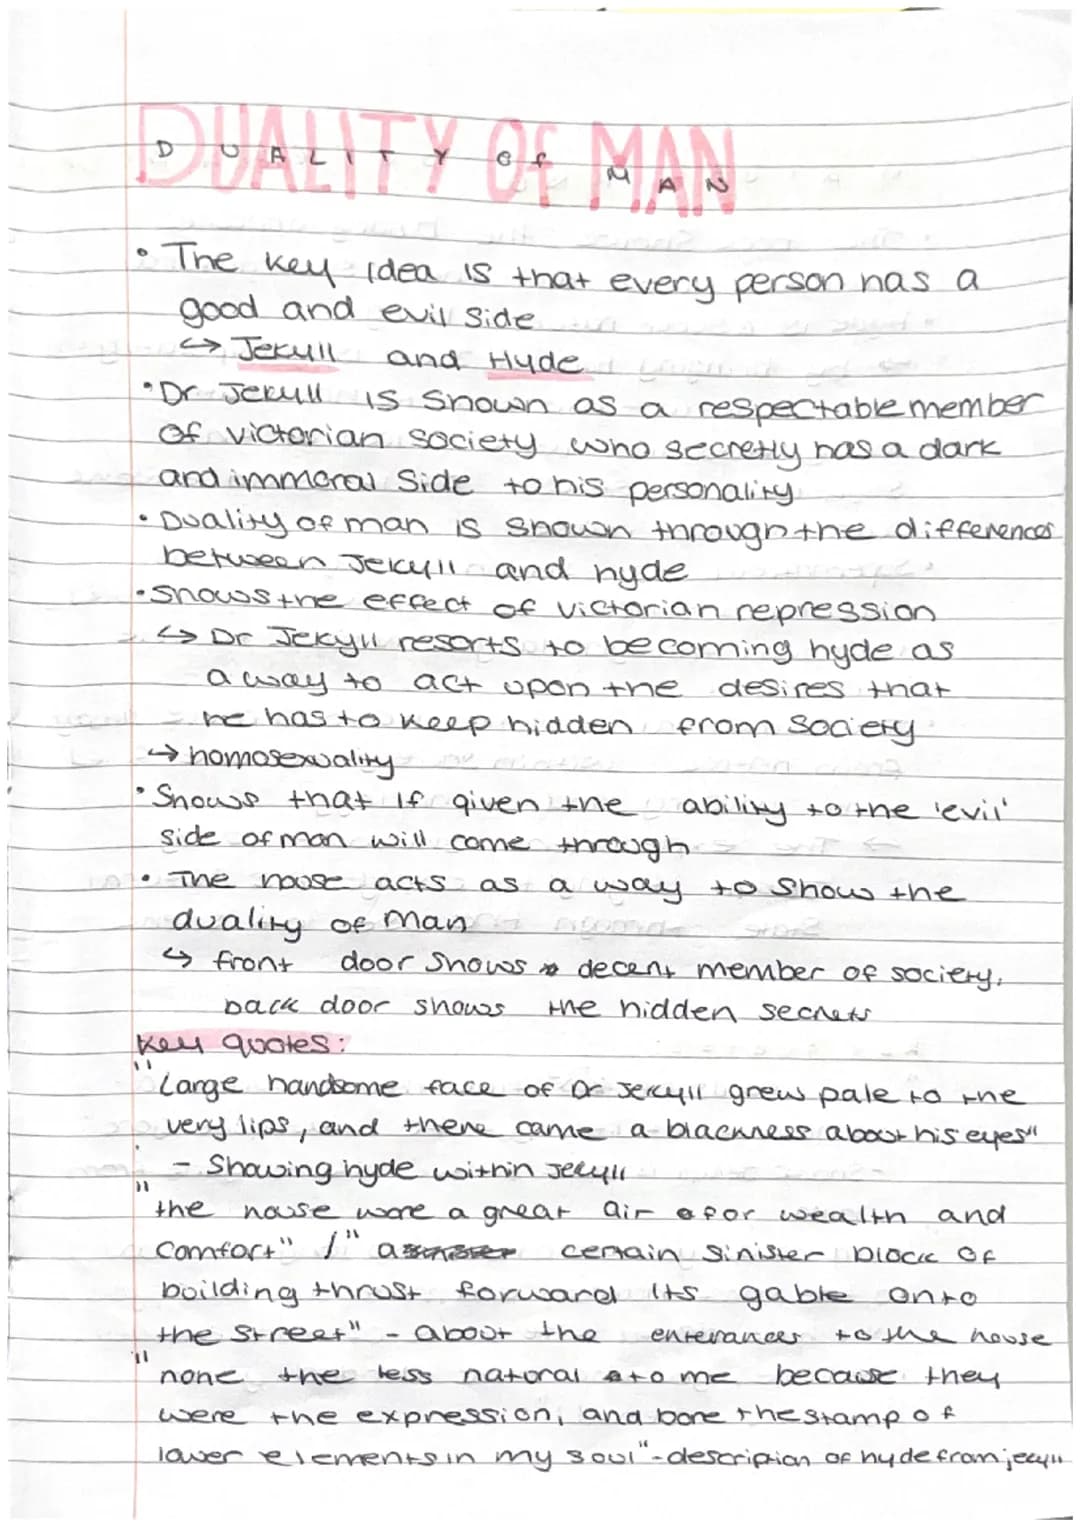 DUALITY OF MAN
DUALITY OF MAN
• The key idea is that every person has a
good and evil side
↳ Jekyll and Hyde
• Dr Jekyll is shown as a respectable member
of victorian society who secretly has a dark
and immoral side to his personality
• Duality of man is shown through the differences
between Jekyll and hyde
• Shows the effect of victorian repression
↳ Dr Jekyll resorts to becoming hyde as
a way to act upon the desires that
he has to keep hidden from society
→ homosexuality
• Shows that if given the ability to the 'evil'
side of man will come through
• The house acts as a way to show the
duality of man
↳ front door shows decent member of society,
back door shows the hidden secrets
Key quotes:
"Large handsome face of Dr Jekyll grew pale to the
very lips, and there came a blackness about his eyes"
- Showing hyde within Jekyll
"the house wore a great air of or wealth and
comfort" / "a certain sinister block of
building thrust forward its gable onto
the street" - about the enterances to the house
"none the less natural to me because they
were the expression, and bore the stamp of
lower elements in my soul" - description of hyde from jekyll